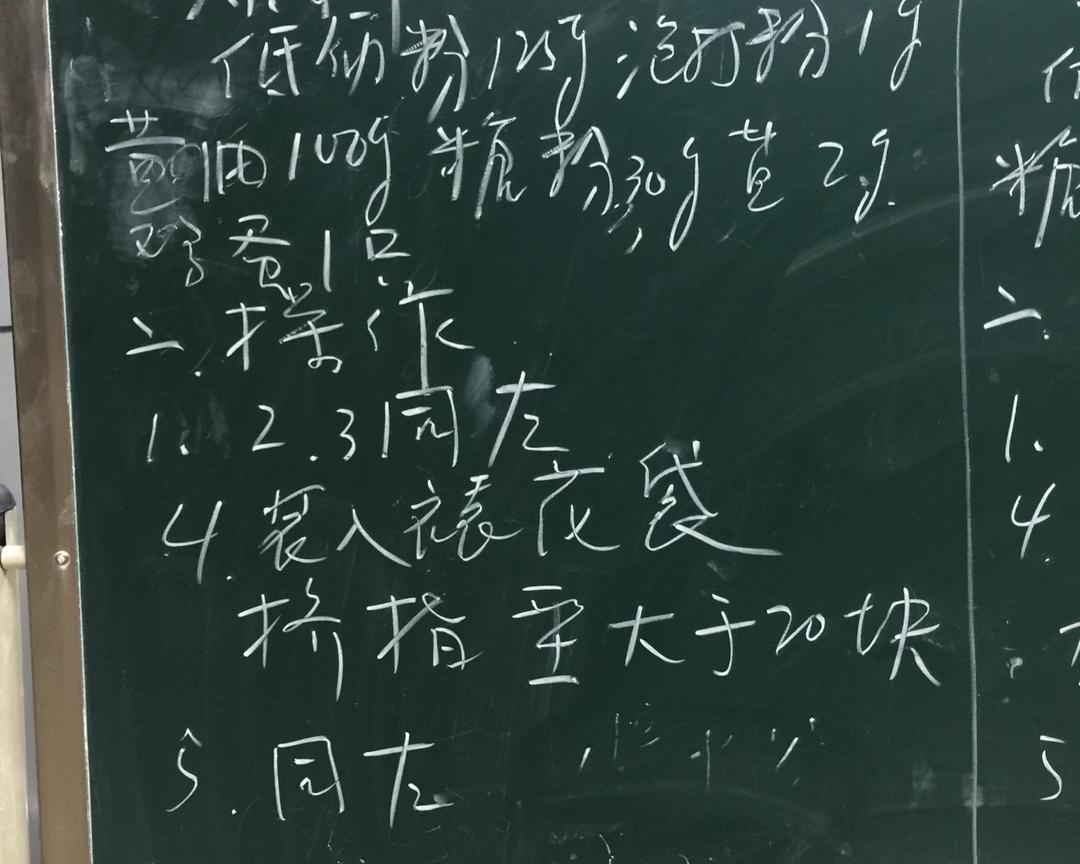 低筋粉125g 泡打粉1g
黄油100g 糖粉30g 黄 2g
鸡蛋1只
二.操作
1. 2.3同左
4.装入裱花袋
挤指 至大于20块
5.同左
糖
二.
1.
4.
5